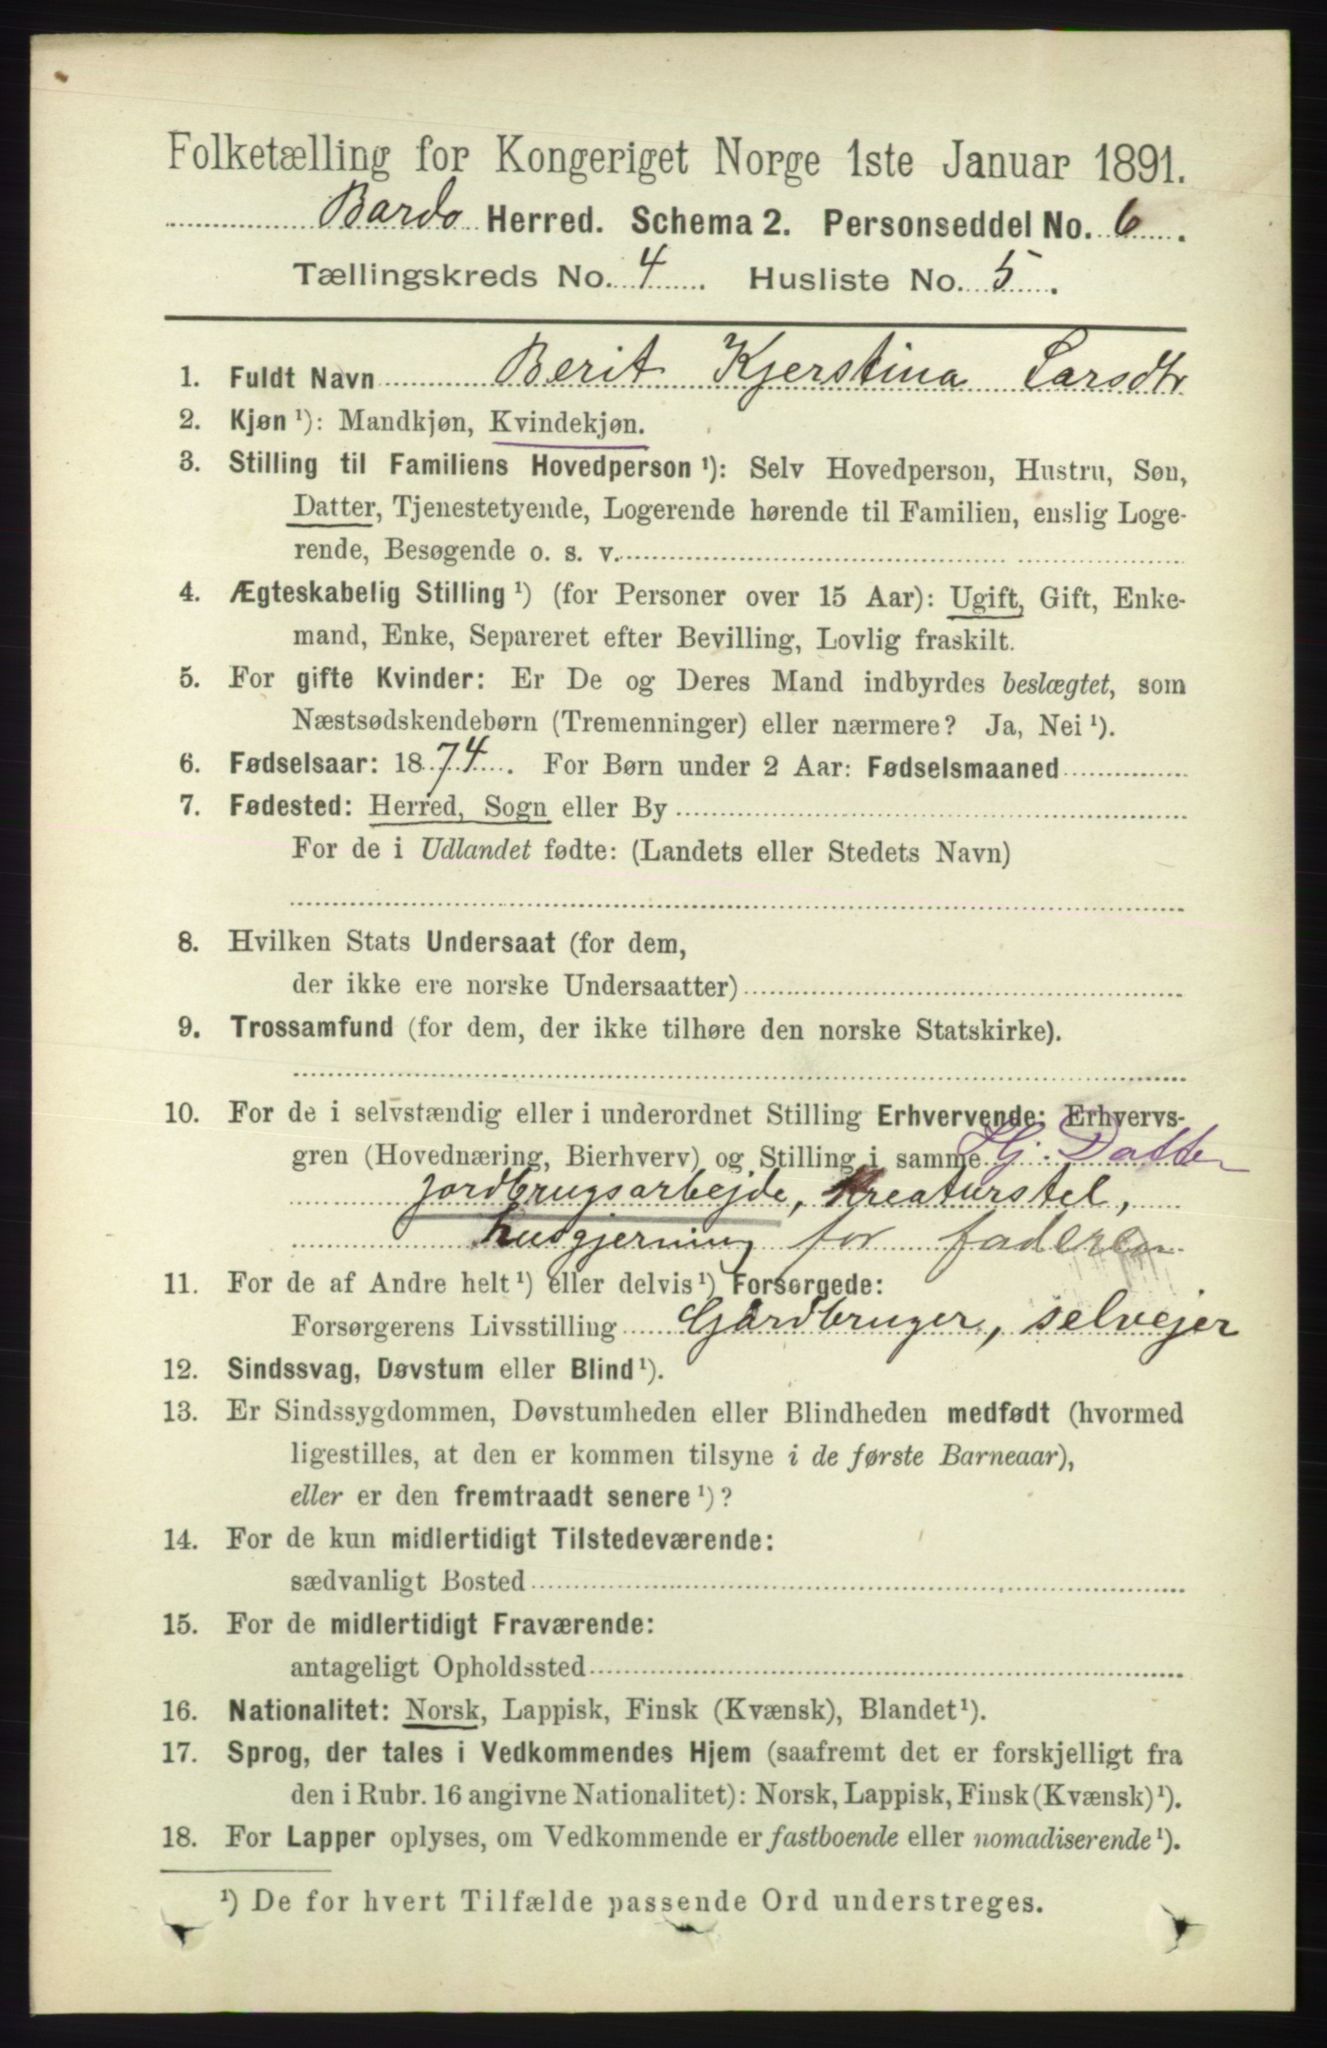 Folketælling for Kongeriget Norge 1ste Januar 1891.
Bardo Herred. Schema 2. Personseddel No. 6.
Tællingskreds No. 4. Husliste No. 5.
1. Fuldt Navn Berit Kjerstina Larsdtr
2. Kjøn ¹): Mandkjøn, Kvindekjøn.
3. Stilling til Familiens Hovedperson ¹): Selv Hovedperson, Hustru, Søn,
Datter, Tjenestetyende, Logerende hørende til Familien, enslig Loge-
rende, Besøgende o. s. v.
4. Ægteskabelig Stilling ¹) (for Personer over 15 Aar): Ugift, Gift, Enke-
mand, Enke, Separeret efter Bevilling, Lovlig fraskilt.
5. For gifte Kvinder: Er De og Deres Mand indbyrdes beslægtet, som
Næstsødskendebørn (Tremenninger) eller nærmere? Ja, Nei ¹).
6. Fødselsaar: 1874. For Børn under 2 Aar: Fødselsmaaned
7. Fødested: Herred, Sogn eller By
For de i Udlandet fødte: (Landets eller Stedets Navn)
8. Hvilken Stats Undersaat (for dem,
der ikke ere norske Undersaatter)
9. Trossamfund (for dem, der ikke tilhøre den norske Statskirke).
10. For de i selvstændig eller i underordnet Stilling Erhvervende: Erhvervs-
gren (Hovednæring, Bierhverv) og Stilling i samme Hj. Datter
jordbrugsarbejde, kreaturstel,
husgjerning for faderen
11. For de af Andre helt ¹) eller delvis ¹) Forsørgede:
Forsørgerens Livsstilling Gårdbruger, selvejer
12. Sindssvag, Døvstum eller Blind ¹).
13. Er Sindssygdommen, Døvstumheden eller Blindheden medfødt (hvormed
ligestilles, at den er kommen tilsyne i de første Barneaar),
eller er den fremtraadt senere ¹)?
14. For de kun midlertidigt Tilstedeværende:
sædvanligt Bosted
15. For de midlertidigt Fraværende:
antageligt Opholdssted
16. Nationalitet: Norsk, Lappisk, Finsk (Kvænsk), Blandet ¹).
17. Sprog, der tales i Vedkommendes Hjem (saafremt det er forskjelligt fra
den i Rubr. 16 angivne Nationalitet): Norsk, Lappisk, Finsk (Kvænsk) ¹).
18. For Lapper oplyses, om Vedkommende er fastboende eller nomadiserende ¹).
¹) De for hvert Tilfælde passende Ord understreges.